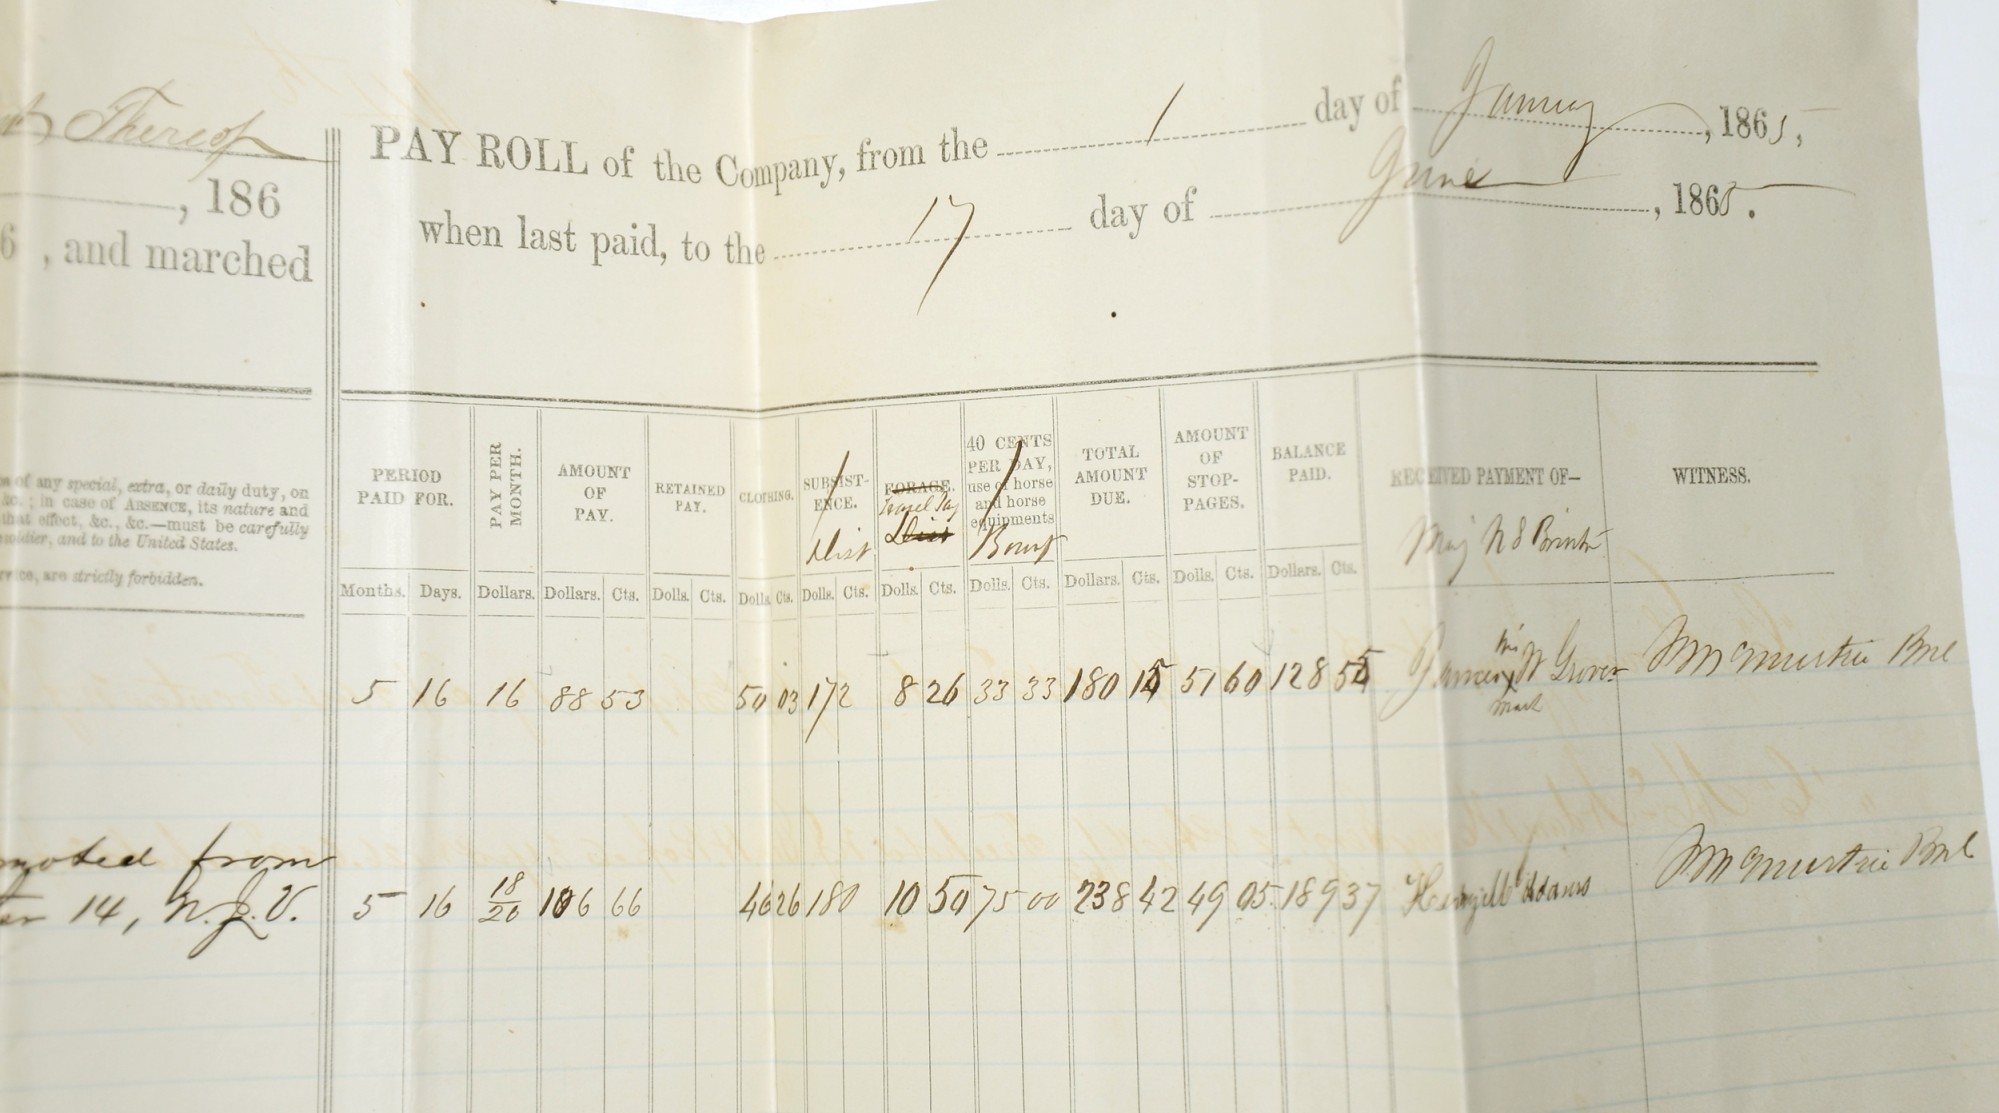 Thereof
, 186
6 , and marched
of any special, extra, or daily duty, on
&c.; in case of ABSENCE, its nature and
that effect, &c., &c.—must be carefully
soldier, and to the United States.
are strictly forbidden.
PAY ROLL of the Company, from the 1 day of January, 1865,
when last paid, to the 17 day of June, 1865.
PERIOD PAID FOR.
PAY PER MONTH.
AMOUNT OF PAY.
RETAINED PAY.
CLOTHING.
SUBSISTENCE.
Dist
FORAGE.
Travel Pay
Dist
40 CENTS PER DAY, use of horse and horse equipments
Bount
TOTAL AMOUNT DUE.
AMOUNT OF STOPPAGES.
BALANCE PAID.
RECEIVED PAYMENT OF—
Maj N S Brinton
WITNESS.
Months. Days. Dollars. Dollars. Cts. Dolls. Cts. Dolls. Cts. Dolls. Cts. Dolls. Cts. Dolls. Cts. Dollars. Cts. Dolls. Cts. Dollars. Cts.
5 16 16 88 53 50 03 172 8 26 33 33 180 15 51 60 128 55 James his x mark W Grover
moted from
14, N.J.V. 5 16 18/20 106 66 46 26 180 10 50 75 00 238 42 49 05 189 37 Adams